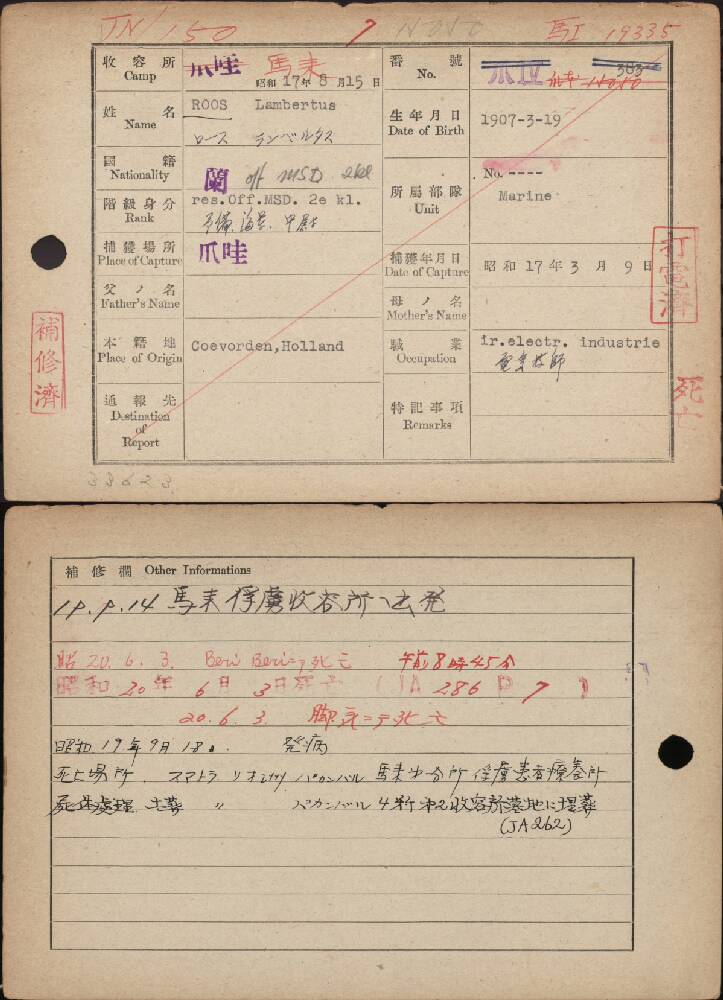 JN/150 7 No50 馬I 19335
收容所 Camp 爪哇 馬来 昭和17年8月15日
番號 No. 爪哇 383 No10
姓名 Name ROOS Lambertus
ロース ランベルタス
生年月日 Date of Birth 1907-3-19
國籍 Nationality 蘭 off MSD 2kl
No.----
階級身分 Rank res.Off.MSD. 2e kl.
予備 海軍 中尉
所屬部隊 Unit Marine
捕獲場所 Place of Capture 爪哇
捕獲年月日 Date of Capture 昭和17年3月9日
打電濟
父ノ名 Father's Name
母ノ名 Mother's Name
補修濟
本籍地 Place of Origin Coevorden,Holland
職業 Occupation ir.electr. industrie
電気技師
死亡
通報先 Destination of Report
特記事項 Remarks
33623
補修欄 Other Informations
19.9.14 馬来俘虜收容所ヘ出発
昭20.6.3. Beri Beriニテ死亡 午前8時45分
昭和20年6月3日死亡 (JA 286 P 7)
20.6.3. 脚気ニテ死亡
昭和19年9月18日 発病
死亡場所 スマトラ リオ州 パカンバル 馬来中分所俘虜患者療養所
死体處理 土葬 〃 パカンバル 4粁 第2收容所墓地に埋葬
(JA262)